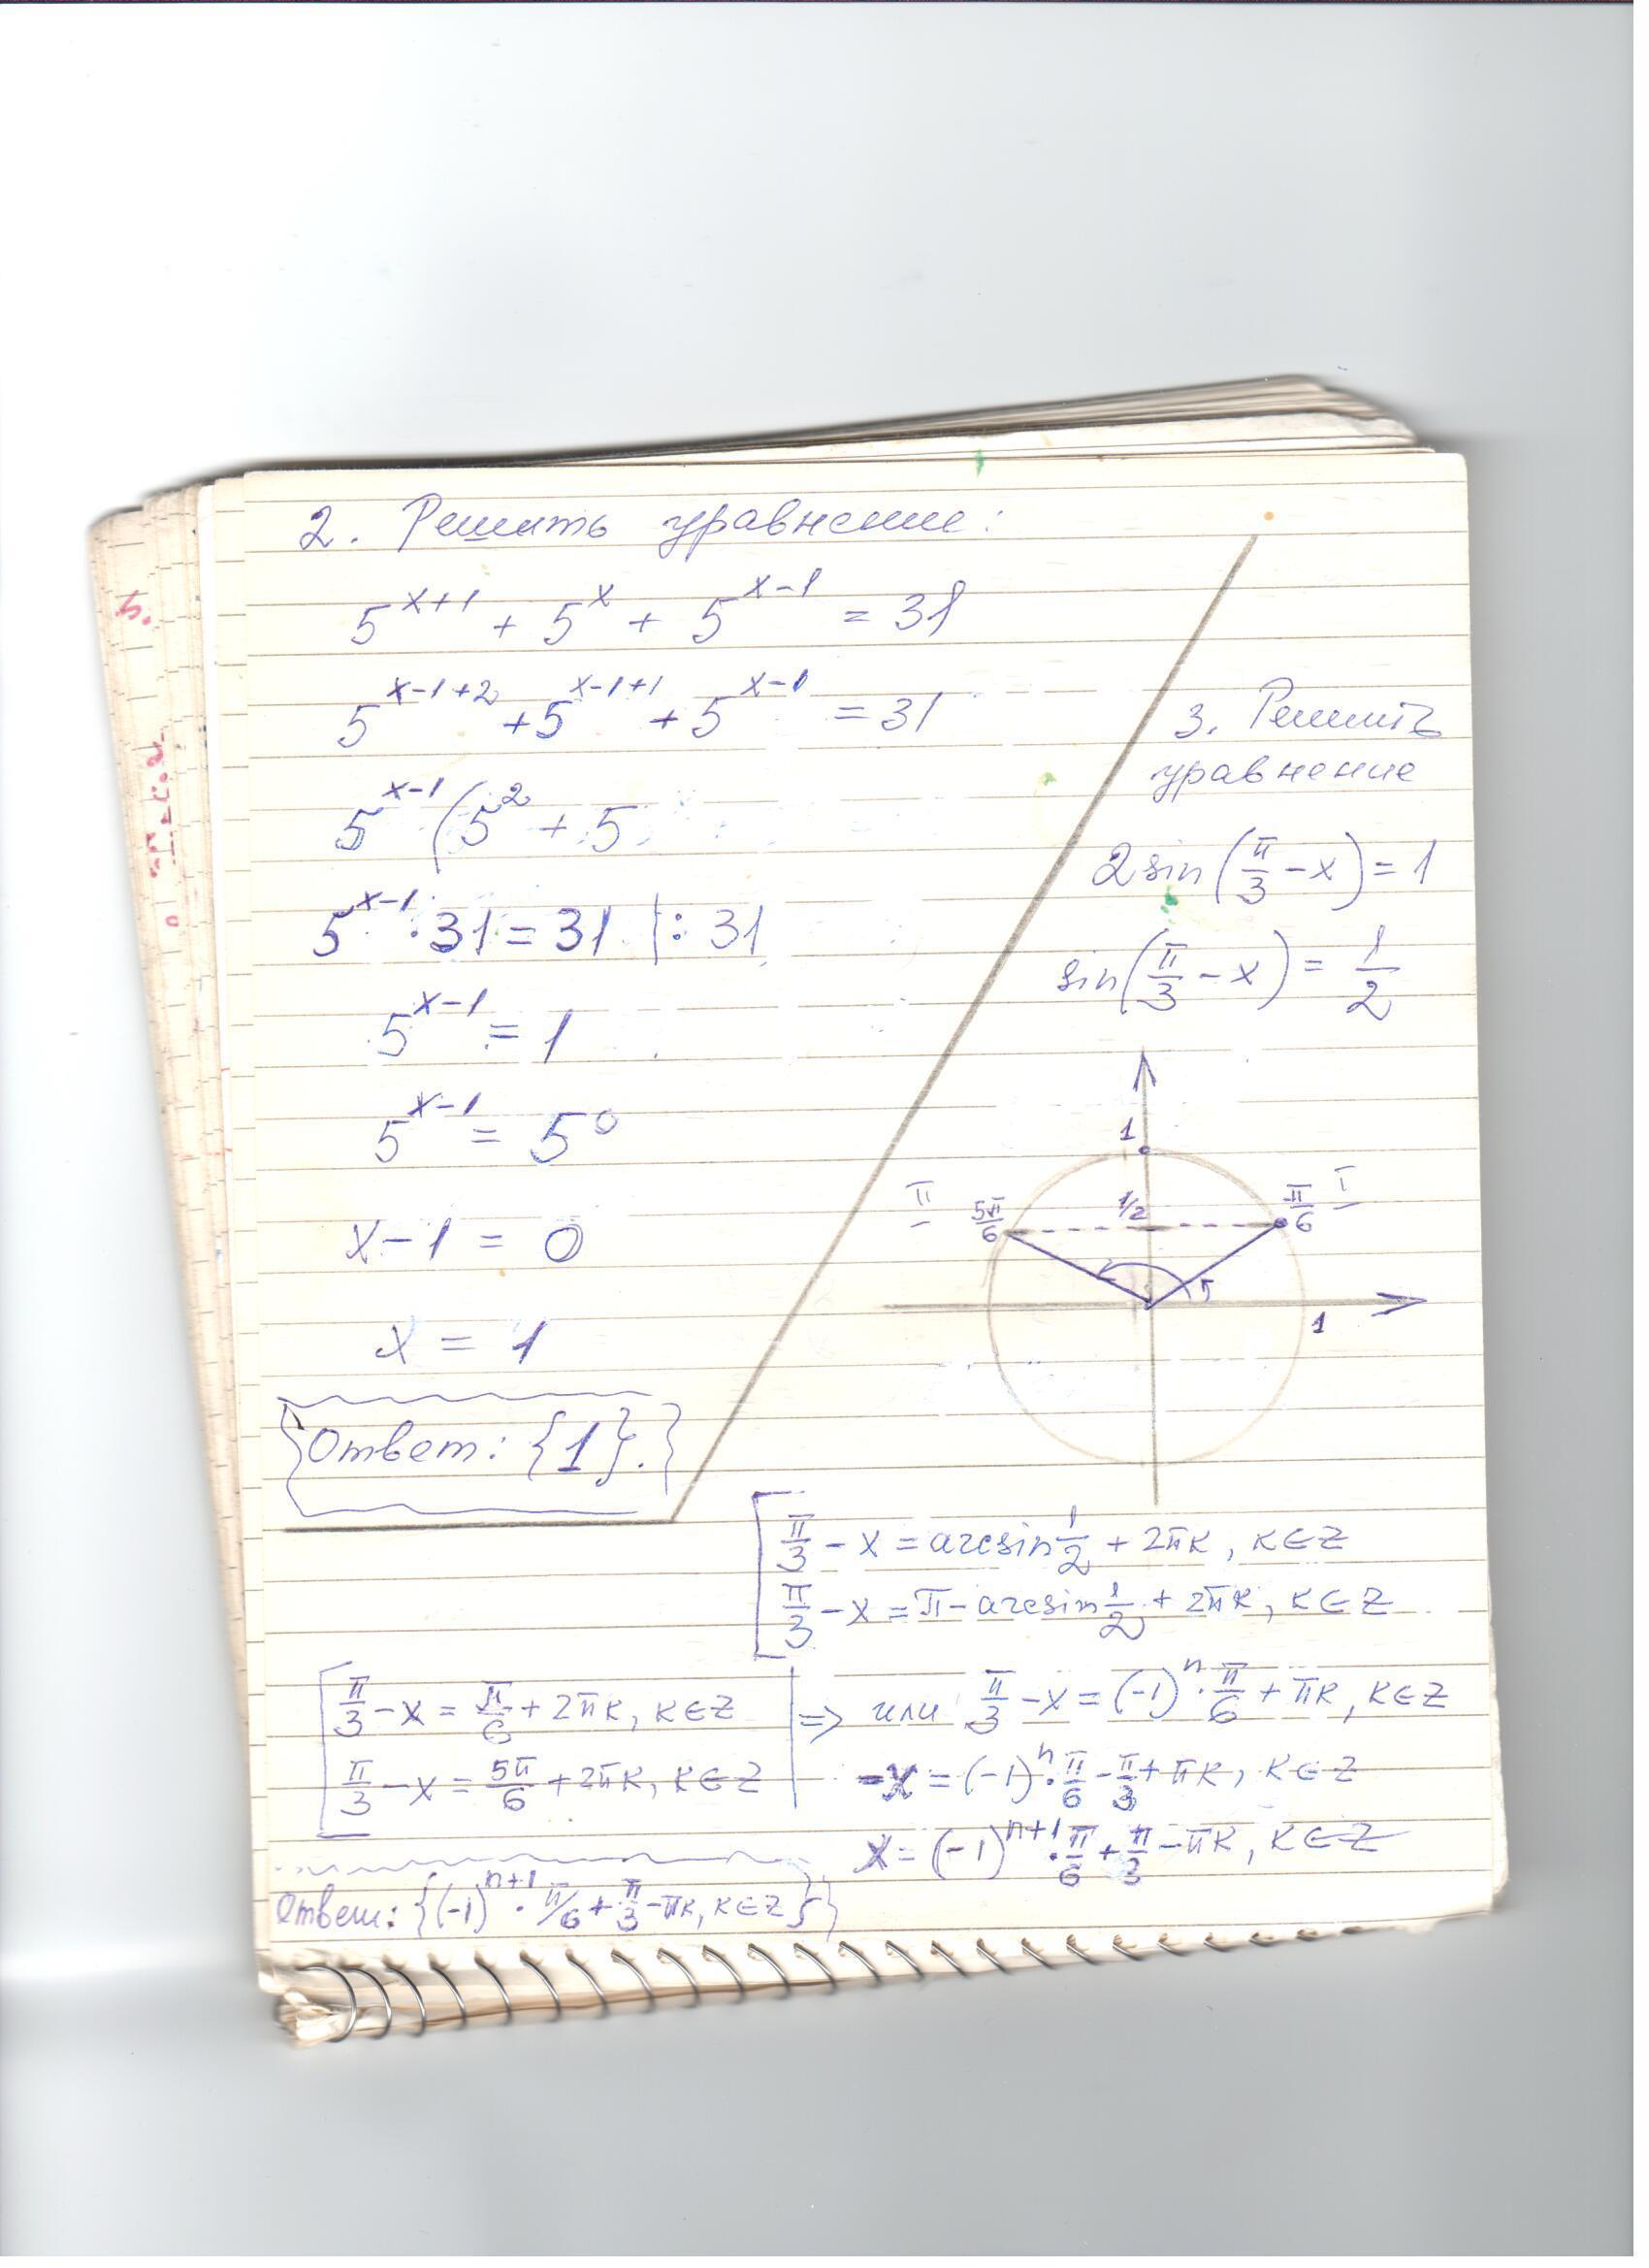 2. Решить уравнение:
5^{x+1} + 5^x + 5^{x-1} = 31
5^{x-1+2} + 5^{x-1+1} + 5^{x-1} = 31
5^{x-1} (5^2 + 5
5^{x-1} · 31 = 31 |: 31
5^{x-1} = 1
5^{x-1} = 5^0
x - 1 = 0
x = 1
Ответ: {1}.
3. Решить
уравнение
2 sin(π/3 - x) = 1
sin(π/3 - x) = 1/2
1
II 5π/6 1/2 π/6 I
1
π/3 - x = arcsin 1/2 + 2πk, k∈Z
π/3 - x = π - arcsin 1/2 + 2πk, k∈Z
π/3 - x = π/6 + 2πk, k∈Z
π/3 - x = 5π/6 + 2πk, k∈Z
=> или π/3 - x = (-1)^n · π/6 + πk, k∈Z
-x = (-1)^n · π/6 - π/3 + πk, k∈Z
x = (-1)^{n+1} · π/6 + π/3 - πk, k∈Z
Ответ: {(-1)^{n+1} · π/6 + π/3 - πk, k∈Z}